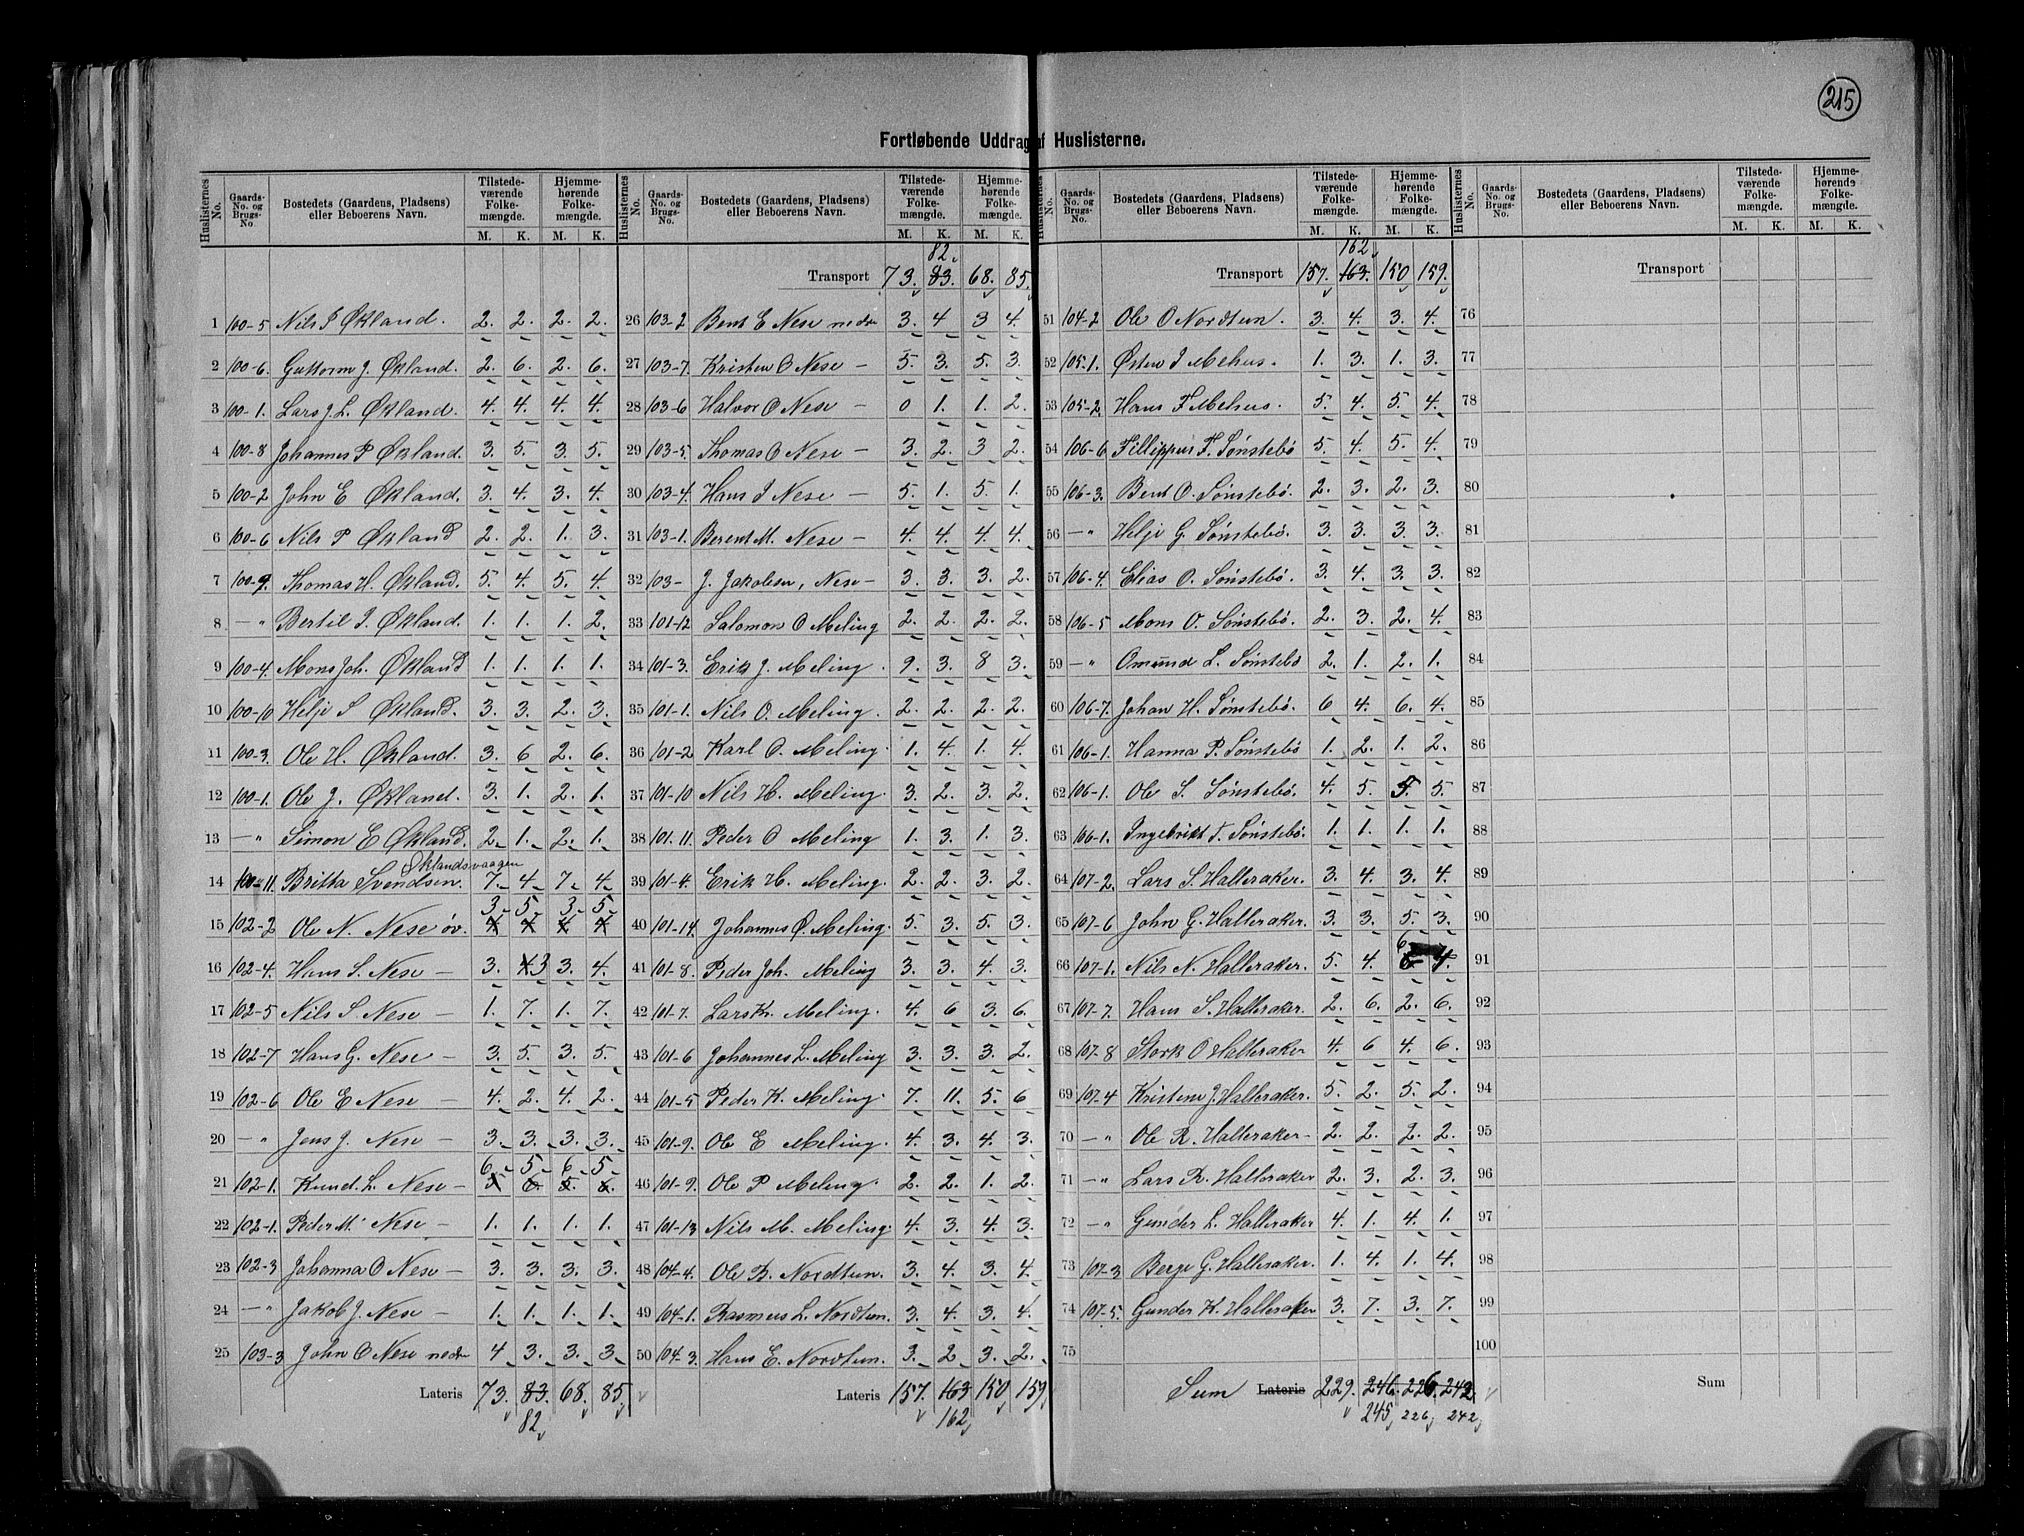 215
Fortløbende Uddrag af Huslisterne.
Huslisternes No. | Gaards-No. og Brugs-No. | Bostedets (Gaardens, Pladsens) eller Beboerens Navn. | Tilstedeværende Folkemængde. M. K. | Hjemmehørende Folkemængde. M. K.
1 100-5 Nils P Økland. 2. 2. 2. 2.
2 100-6. Guttorm J. Økland. 2. 6. 2. 6.
3 100-1. Lars J. L. Økland. 4. 4. 4. 4.
4 100-8 Johannes P Økland. 3. 5. 3. 5.
5 100-2 John E Økland. 3. 4. 3. 4.
6 100-6. Nils P Økland 2. 2. 1. 3.
7 100-9. Thomas H. Økland. 5. 4. 5. 4.
8 —" Bertil I. Økland. 1. 1. 1. 2.
9 100-4. Mons Joh. Økland 1. 1. 1. 1.
10 100-10 Helje S Økland. 3. 3. 2. 3.
11 100-3. Ole H. Økland. 3. 6 2. 6.
12 100-1. Ole J. Økland. 3. 1. 2. 1.
13 —" Simon E Økland. 2. 1. 2. 1.
Øklandsvaagen
14 100-11. Britta Svendsen. 7. 4. 7. 4.
3. 5. 3. 5.
15 102-2 Ole N. Nese øv. 4 4 4 4
16 102-4. Hans S. Nese — 3. 4 3 3. 4.
17 102-5 Nils S. Nese — 1. 7. 1. 7.
18 102-7 Hans G. Nese — 3. 5. 3. 5.
19 102-6 Ole E Nese — 4. 2. 4. 2.
20 —" Jens J. Nese — 3. 3. 3. 3.
6. 5. 6. 5.
21 102-1. Knud L. Nese — 5 6. 5. 6.
22 102-1. Peder M. Nese — 1. 1. 1. 1.
23 102-3 Johanna O Nese — 3. 3. 3. 3.
24 —" Jakob J. Nese — 1. 1. 1. 1.
25 103-3 John O Nese nedre 4 3. 3. 3.
Lateris 73. 83. 68. 85.
82
Huslisternes No. | Gaards-No. og Brugs-No. | Bostedets (Gaardens, Pladsens) eller Beboerens Navn. | Tilstedeværende Folkemængde. M. K. | Hjemmehørende Folkemængde. M. K.
82.
Transport 73. 83. 68. 85.
26 103-2 Bent E Nese nedre 3. 4 3 4.
27 103-7. Kristen O Nese — 5. 3. 5. 3.
28 103-6 Halvor O Nese — 0 1. 1. 2.
29 103-5. Thomas O Nese — 3. 2. 3 2.
30 103-4. Hans I Nese — 5. 1. 5. 1.
31 103-1. Berent M. Nese — 4. 4. 4. 4.
32 103- J. Jakobsen, Nese — 3. 3. 3. 2.
33 101-12 Salomon O Meling 2. 2. 2. 2.
34 101-3. Erik J. Meling. 9. 3. 8 3.
35 101-1. Nils O. Meling. 2. 2. 2. 2.
36 101-2 Karl O. Meling. 1. 4. 1. 4.
37 101-10 Nils H. Meling. 3. 2. 3. 2.
38 101-11. Peder O Meling 1. 3. 1. 3.
39 101-4. Erik H. Meling. 2. 2. 3. 2.
40 101-14. Johannes O. Meling. 5. 3. 5. 3.
41 101-8. Peder Joh. Meling 3. 3. 4. 3.
42 101-7. Lars K. Meling. 4. 6 3. 6.
43 101-6 Johannes L. Meling 3. 3. 3. 2.
44 101-5 Peder K. Meling. 7. 11. 5. 6
45 101-9. Ole E Meling. 4. 3. 4. 3.
46 101-9. Ole P Meling. 2. 2. 1. 2.
47 101-13 Nils M. Meling. 4. 3. 4. 3.
48 104-4. Ole B. Nordtun. 3. 4. 3. 4.
49 104-1. Rasmus L. Nordtun. 3. 4. 3. 4.
50 104-3. Hans E. Nordtun. 3. 2 3. 2.
Lateris 157. 163 150 159
162
Huslisternes No. | Gaards-No. og Brugs-No. | Bostedets (Gaardens, Pladsens) eller Beboerens Navn. | Tilstedeværende Folkemængde. M. K. | Hjemmehørende Folkemængde. M. K.
162
Transport 157. 163. 150 159.
51 104-2 Ole O Nordtun. 3. 4. 3. 4.
52 105-1. Østen I Mehus. 1. 3. 1. 3.
53 105-2. Hans F Mehus. 5. 4. 5. 4.
54 106-6 Fillippus F. Sønstebö 5. 4. 5. 4.
55 106-3. Bent O. Sönstebö. 2. 3. 2. 3.
56 —" Helje G. Sønstebö. 3. 3. 3. 3.
57 106-4. Elias O. Sönstebö. 3. 4. 3. 3.
58 106-5 Mons O. Sönstebö. 2. 3. 2. 4.
59 —" Omund L. Sönstebö 2. 1. 2. 1.
60 106-7. Johan H. Sönstebö. 6 4. 6. 4.
61 106-1. Hanna P. Sönstebö 1. 2. 1. 2.
62 106-1. Ole S. Sönstebö. 4. 5. 5. 5.
63 106-1. Ingebrikt T. Sönstebö. 1. 1. 1. 1.
64 107-2. Lars S. Halleraker. 3. 4. 3. 4.
65 107-6 John G. Halleraker. 3. 3. 5. 3.
66 107-1. Nils N. Halleraker. 5. 4. 6 4.
67 107-7. Hans S. Halleraker. 2. 6. 2. 6.
68 107-8 Stork O Halleraker 4. 6 4. 6.
69 107-4 Kristine J. Halleraker. 5. 2. 5. 2.
70 —" Ole R. Halleraker 2. 2. 2. 2.
71 —" Lars R. Halleraker 2. 3. 2. 3.
72 —" Gunder L. Halleraker 4. 1. 4. 1.
73 107-3 Berje G. Halleraker. 1. 4. 1. 4.
74 107-5. Gunder K. Halleraker 3. 7. 3. 7.
75
Sum Lateris 229. 246. 226. 242
245 226 242
Huslisternes No. | Gaards-No. og Brugs-No. | Bostedets (Gaardens, Pladsens) eller Beboerens Navn. | Tilstedeværende Folkemængde. M. K. | Hjemmehørende Folkemængde. M. K.
Transport
76
77
78
79
80
81
82
83
84
85
86
87
88
89
90
91
92
93
94
95
96
97
98
99
100
Sum